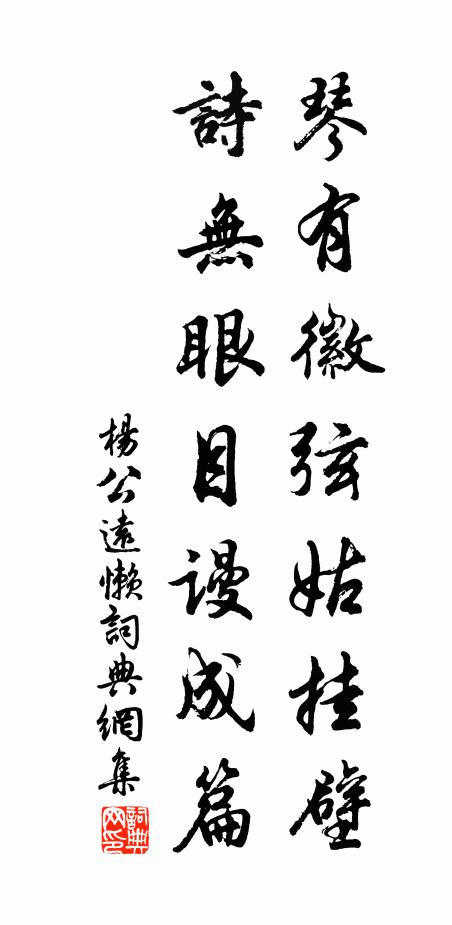 琴有徽弦姑挂壁
詩無眼目謾成篇
楊公遠懶詞典網集
詞典网印